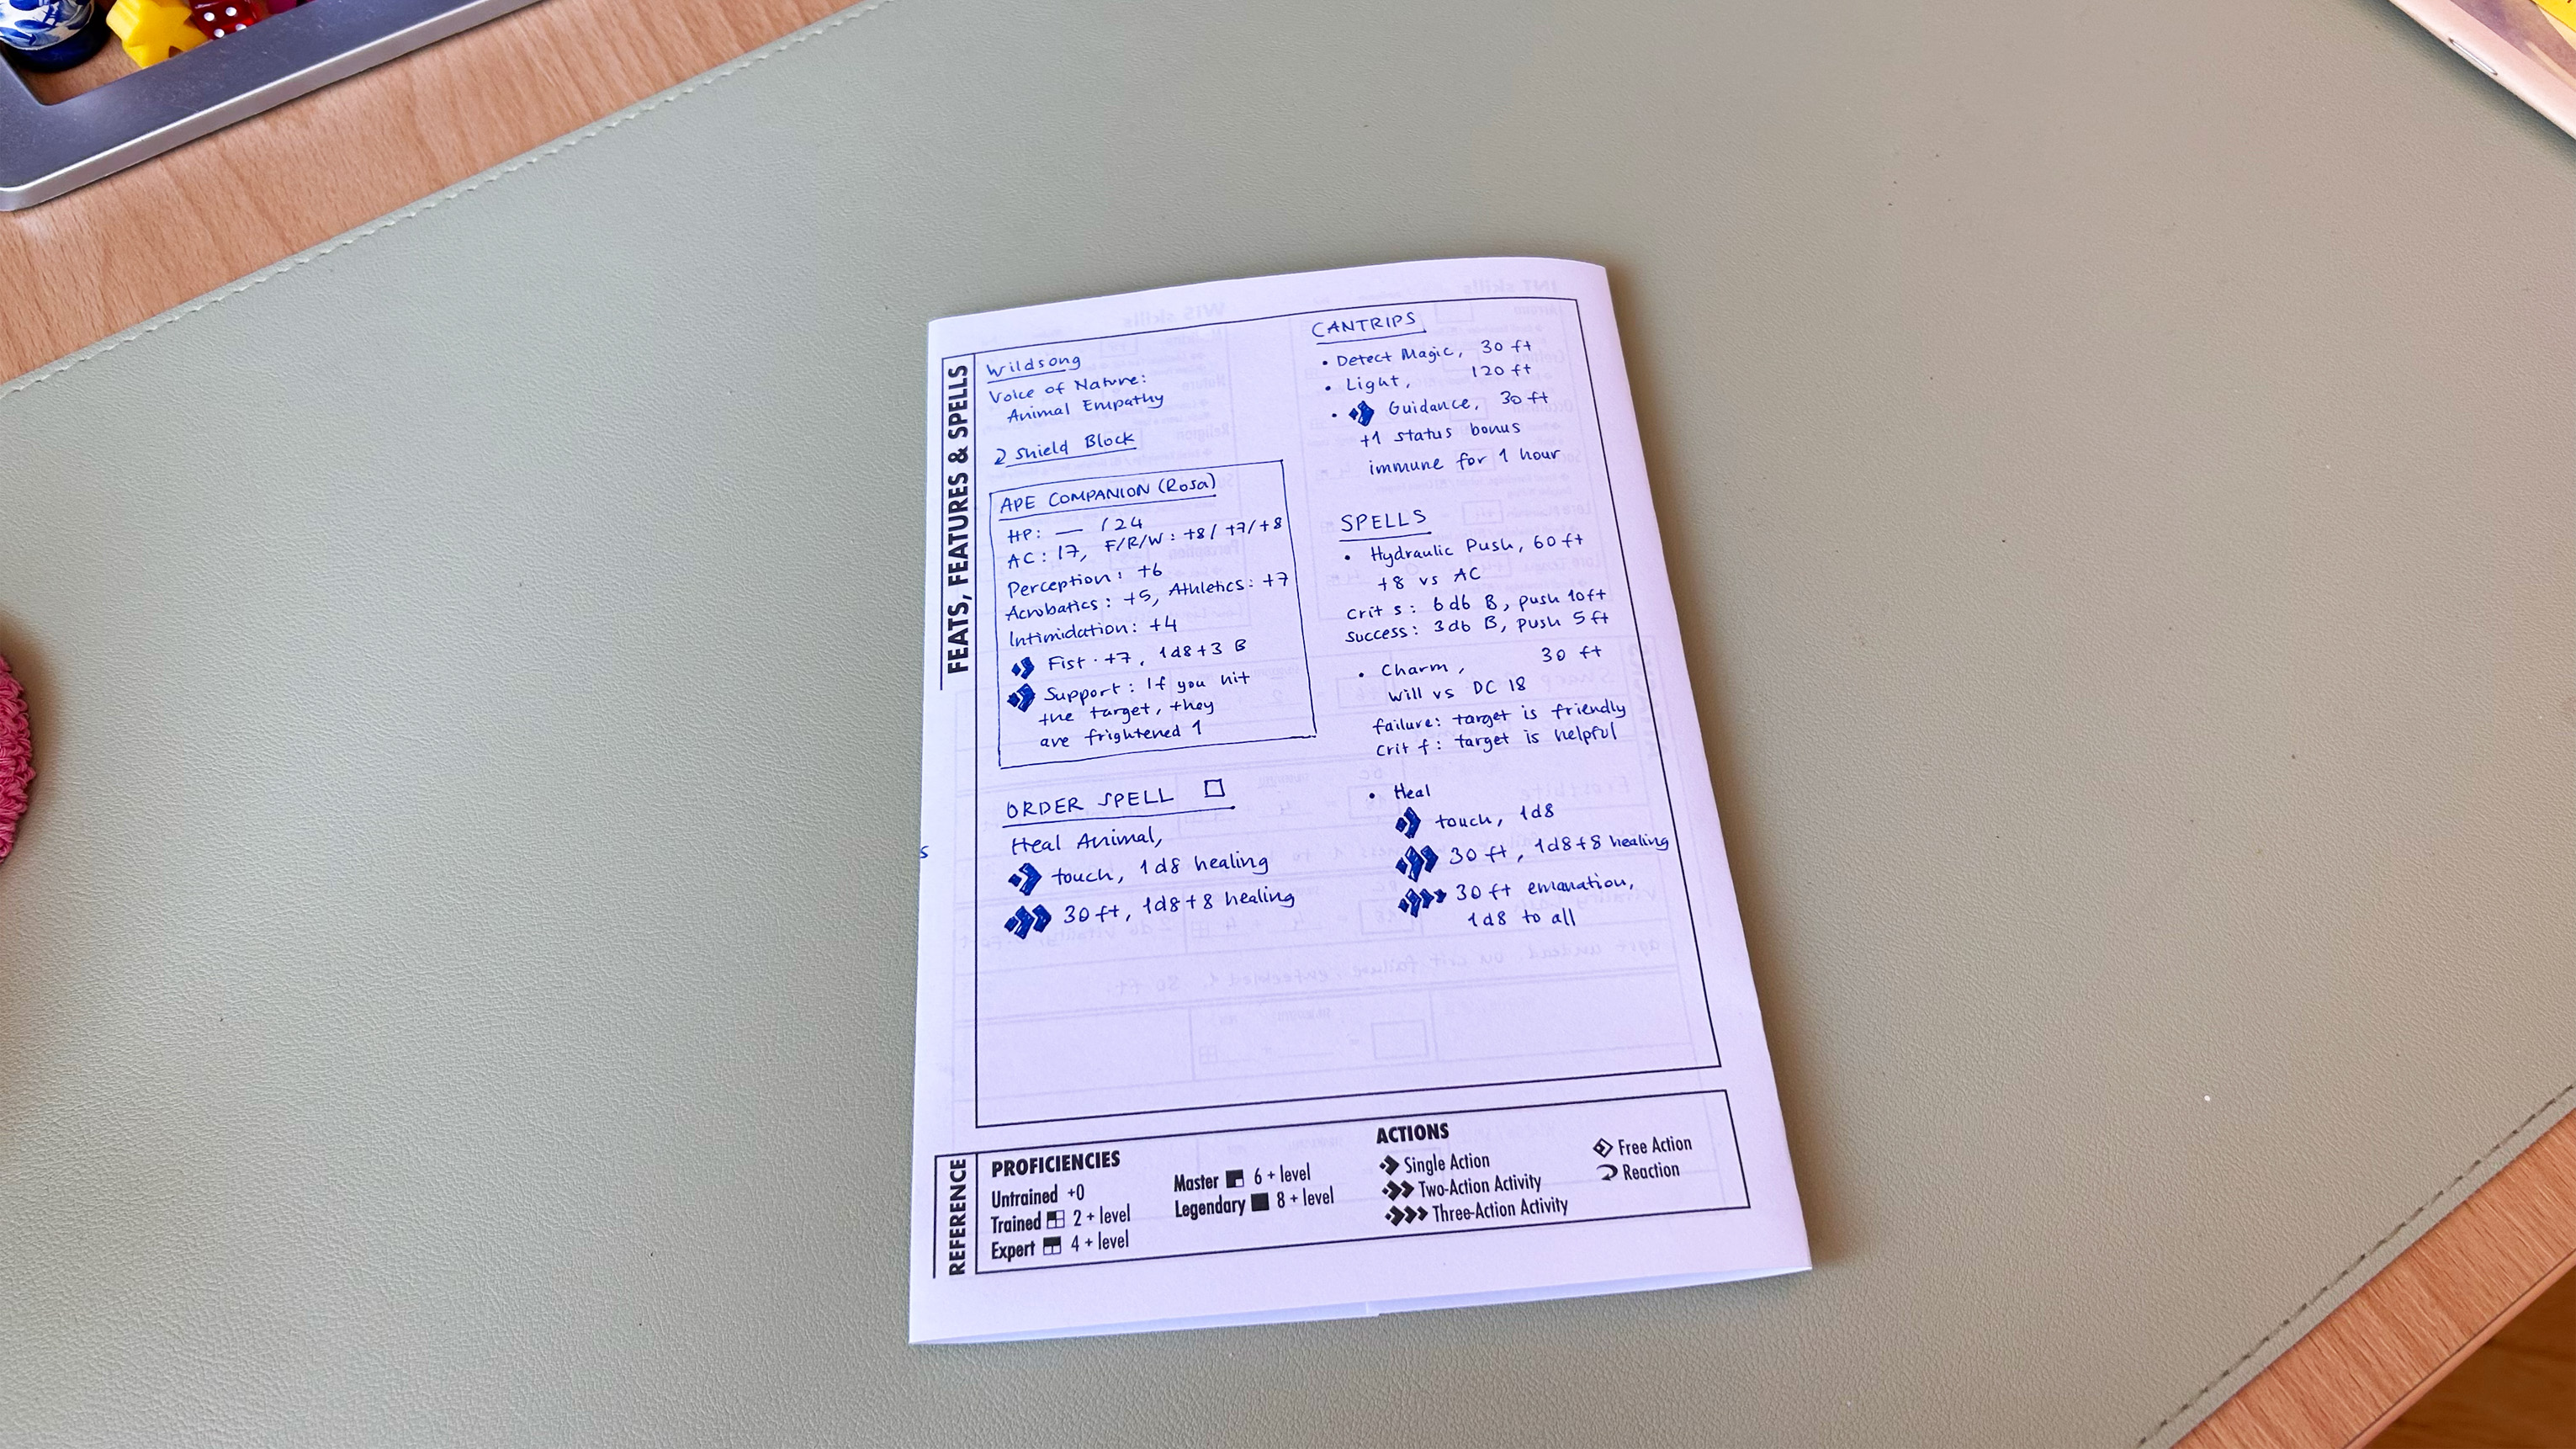 FEATS, FEATURES & SPELLS
Wildsong
Voice of Nature:
Animal Empathy
Shield Block
APE COMPANION (Rosa)
HP: — / 24
AC: 17, F/R/W: +8/ +7/ +8
Perception: +6
Acrobatics: +5, Athletics: +7
Intimidation: +4
Fist · +7, 1d8+3 B
Support: If you hit
the target, they
are frightened 1
ORDER SPELL
Heal Animal,
touch, 1d8 healing
30 ft, 1d8+8 healing
CANTRIPS
• Detect Magic, 30 ft
• Light, 120 ft
• Guidance, 30 ft
+1 status bonus
immune for 1 hour
SPELLS
• Hydraulic Push, 60 ft
+8 vs AC
Crit s: 6d6 B, push 10ft
Success: 3d6 B, push 5 ft
• Charm, 30 ft
Will vs DC 18
failure: target is friendly
Crit f: target is helpful
• Heal
touch, 1d8
30 ft, 1d8+8 healing
30 ft emanation,
1d8 to all
REFERENCE
PROFICIENCIES
Untrained +0
Trained 2 + level
Expert 4 + level
Master 6 + level
Legendary 8 + level
ACTIONS
Single Action
Two-Action Activity
Three-Action Activity
Free Action
Reaction